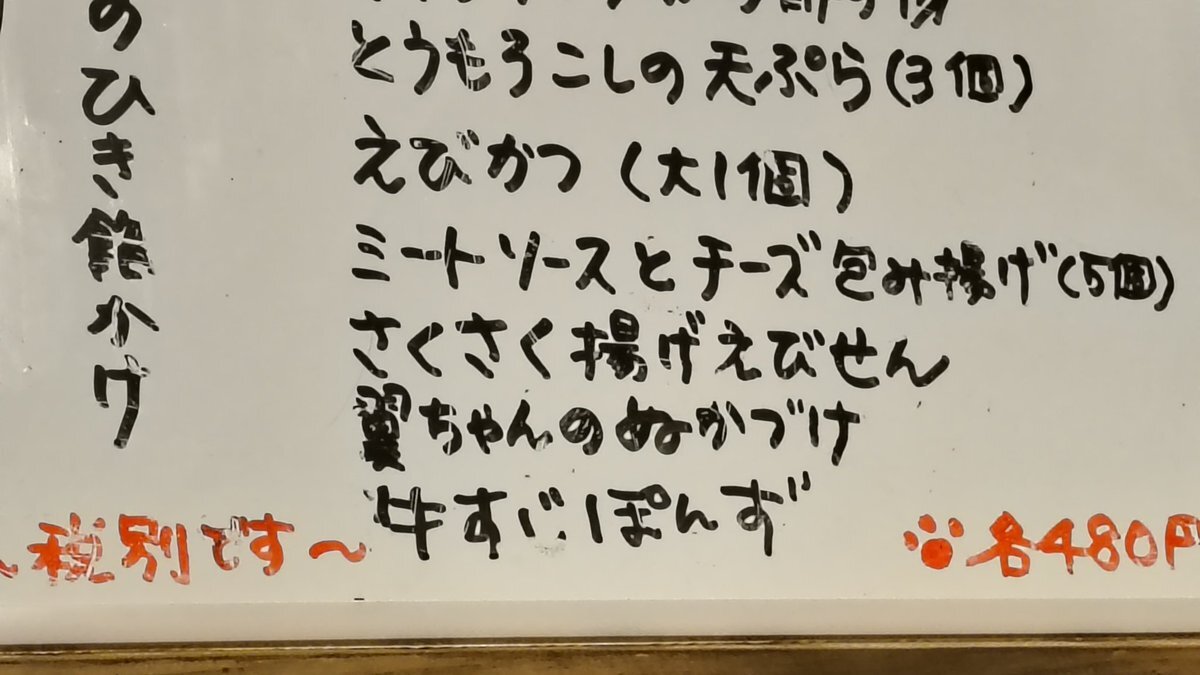 とうもろこしの天ぷら(3個)
えびかつ(大1個)
ミートソースとチーズ包み揚げ(5個)
さくさく揚げえびせん
翼ちゃんのぬかづけ
牛すじぽんず
各480円
のひき餡かけ
~税別です~